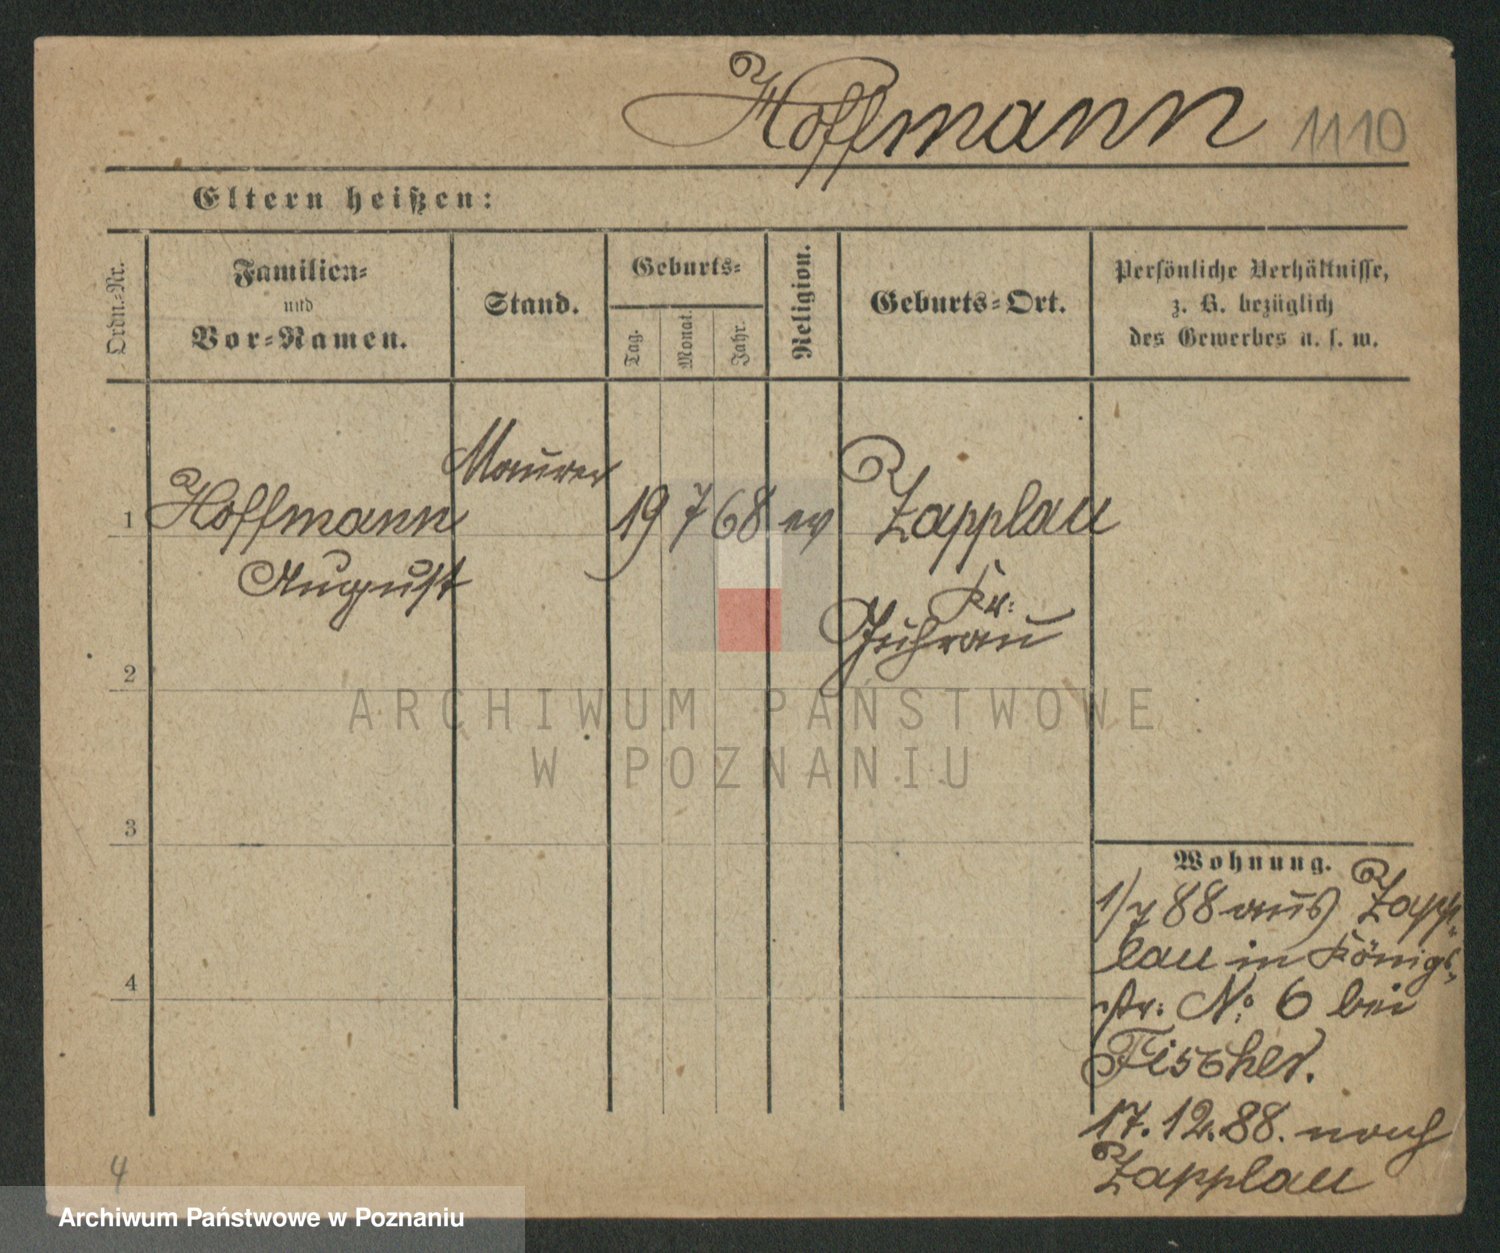 Hoffmann 1110
Eltern heißen:
Ordn.-Nr.
Familien-
und
Vor-Namen.
Stand.
Geburts-
Tag.
Monat.
Jahr.
Religion.
Geburts-Ort.
Persönliche Verhältnisse,
z. B. bezüglich
des Gewerbes u. s. w.
1 Hoffmann Maurer 19 7 68 ev Zapplau
August
Kr:
Guhrau
2
3
4
ARCHIWUM PAŃSTWOWE
W POZNANIU
Wohnung.
1/7 88 aus Zapp-
lau in Königs-
str: No. 6 bei
Fischer.
17.12.88. nach
Zapplau
4
Archiwum Państwowe w Poznaniu